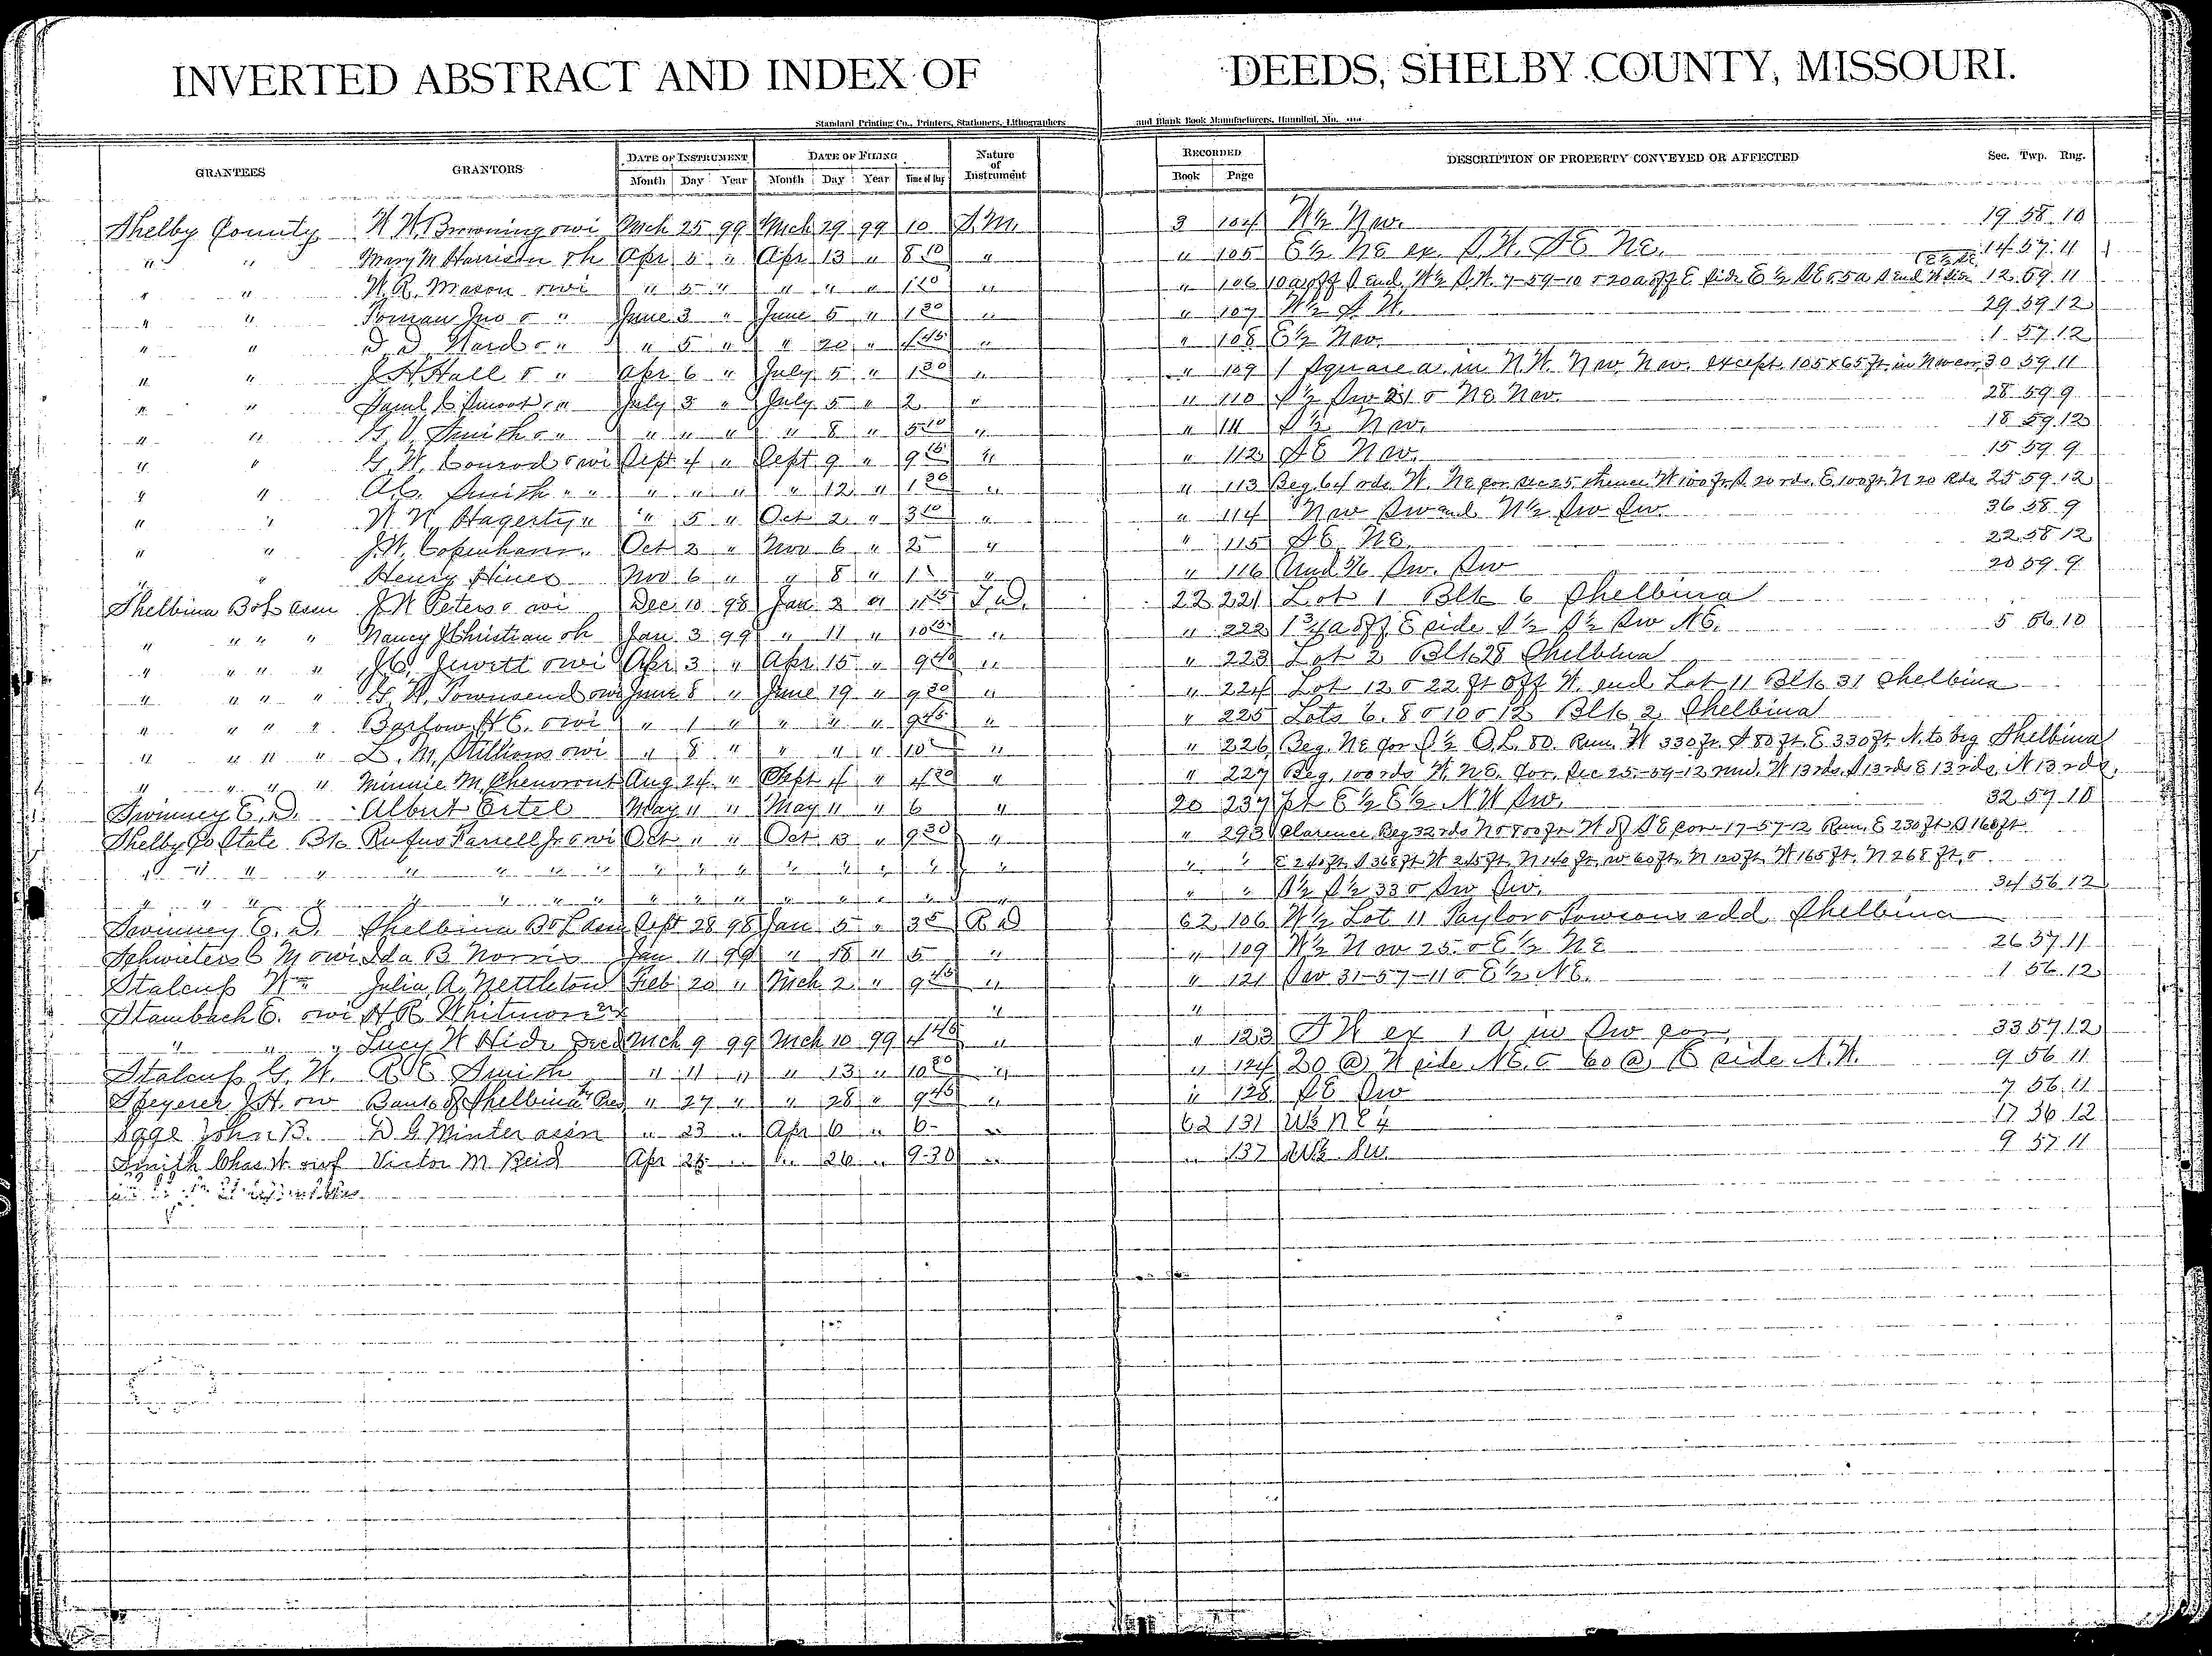 INVERTED ABSTRACT AND INDEX OF DEEDS, SHELBY COUNTY, MISSOURI.
Standard Printing Co., Printers, Stationers, Lithographers and Blank Book Manufacturers, Hannibal, Mo.
GRANTEES GRANTORS DATE OF INSTRUMENT DATE OF FILING Nature of Instrument RECORDED DESCRIPTION OF PROPERTY CONVEYED OR AFFECTED Sec. Twp. Rng.
Month Day Year Month Day Year Time of Day Book Page
Shelby County W. W. Browning & wi Mch 25 99 Mch 29 99 10 S.M. 3 104 N½ Nw. 19 58 10
" " Mary M Harrison Apr 5 " Apr 13 " 8 10 " " 105 E½ NE ex. S.W. SE NE. 14 57 11
" " W. R. Mason & wi " 5 " " " " 1 10 " " 106 10a off S end W½ S.W. 7-59-10 & 20a off E side E½ SE & 5a S end W side E½ SE 12 59 11
" " Toman Jno & " June 3 " June 5 " 1 30 " " 107 W½ S W. 29 59 12
" " D. D. Ward & " " 5 " " 20 " 4 45 " " 108 E½ Nw. 1 57 12
" " J H Hall & " Apr 6 " July 5 " 1 30 " " 109 1 square a. in N.W. Nw. Nw. except 105 x 65 ft. in Nw cor 30 59 11
" " Saml C " July 3 " July 5 " 2 " " 110 S½ Sw 21 & NE Nw. 28 59 9
" " G. V. Smith & " " " " " 8 " 5 10 " " 111 S½ Nw. 18 59 12
" " G. W. Conrad & wi Sept 4 " Sept 9 " 9 15 " " 112 SE Nw. 15 59 9
" " A.C. Smith " " " " " " 12 " 1 30 " " 113 Beg. 64 rds. W. NE cor sec 25, thence W 100 ft. S. 20 rds. E. 100 ft. N 20 Rds. 25 59 12
" " W. N. Hagerty " " 5 " Oct 2 " 3 10 " " 114 Nw Sw and N½ Sw Sw 36 58 9
" " J.W. Copenhaver Oct 2 " Nov 6 " 2 " " 115 SE NE. 22 58 12
" " Henry Hines Nov 6 " " 8 " 1 " " 116 Und Sw. Sw 20 59 9
Shelbina B & L assn J. W Peters & wi Dec 10 98 Jan 2 " 11 45 T.D. 22 221 Lot 1 Blk 6 Shelbina
" " " " Nancy J Christian Jan. 3 99 " 11 " 10 15 " " 222 1¾ a off E side S½ S½ Sw NE. 5 56 10
" " " " J.C. Jewett & wi Apr 3 " Apr 15 " 9 40 " " 223 Lot 2 Blk 28 Shelbina
" " " " G. W. Townsend & wi June 8 " June 19 " 9 30 " " 224 Lot 12 & 22 ft off W. end Lot 11 Blk 31 Shelbina
" " " " Barlow H E. & wi " 1 " " " " 9 45 " " 225 Lots 6. 8 & 10 & 12 Blk 2 Shelbina
" " " " L. M. Stillions & wi " 8 " " " " 10 " " 226 Beg. NE cor S½ O.L. 80. Run. W 330 ft. S 80 ft. E 330 ft. N. to beg Shelbina
" " " " Minnie M. Chenowent Aug 24 " Sept 4 " 4 20 " " 227 Beg. 100 rds W. NE. cor. sec 25-59-12 W 13 rds. S 13 rds E 13 rds. N 13 rds.
Swinney E. D. Albert Ertel May 11 " May 11 " 6 " 20 237 pt E½ E½ N W Sw. 32 57 10
Shelby Co State Bk Rufus Farrell Jr & wi Oct " " Oct 13 " 9 30 " " 293 Clarence Beg 32 rds N & 800 ft W of SE cor 17-57-12 Run. E 230 ft. S 160 ft
" " " " " " " " " " " " " " " " " E 240 ft S 368 ft W 245 ft. N 140 ft. W 60 ft. N 120 ft. W 165 ft. N 268 ft. &
" " " " " " " " " " " " " " " " " S½ S½ 33 & Sw Sw. 34 56 12
Swinney E. D. Shelbina B & L assn Sept 28 98 Jan 5 " 3 R D 62 106 W½ Lot 11 Taylor & Towsons add Shelbina
Schwieters C M & wi Ida B Norris Jan 11 99 " 18 " 5 " " 109 W½ Nw 25 & E½ NE 26 57 11
Stalcup Wm Julia A. Nettleton Feb 20 " Mch 2 " 9 45 " " 121 Sw 31-57-11 & E½ NE. 1 56 12
Stambach E. & wi H R Whitmore " "
" " " Lucy W Hide Mch 9 99 Mch 10 99 4 45 " " 123 S W ex 1 a in Sw cor. 33 57 12
Stalcup G. W. R E Smith " 11 " " 13 " 10 30 " " 124 20 @ W side NE. & 60 @ E side N.W. 9 56 11
Speyerer J.H. & w Bank of Shelbina by Pres " 27 " " 28 " 9 45 " " 128 SE Sw 7 56 11
Sage John B. D G Minter assn " 23 " Apr 6 " 6 " 62 131 W½ NE¼ 17 36 12
Smith Chas W. & wf Victor M Reid Apr 25 " " 26 " 9-30 " " 137 W½ SW. 9 57 11